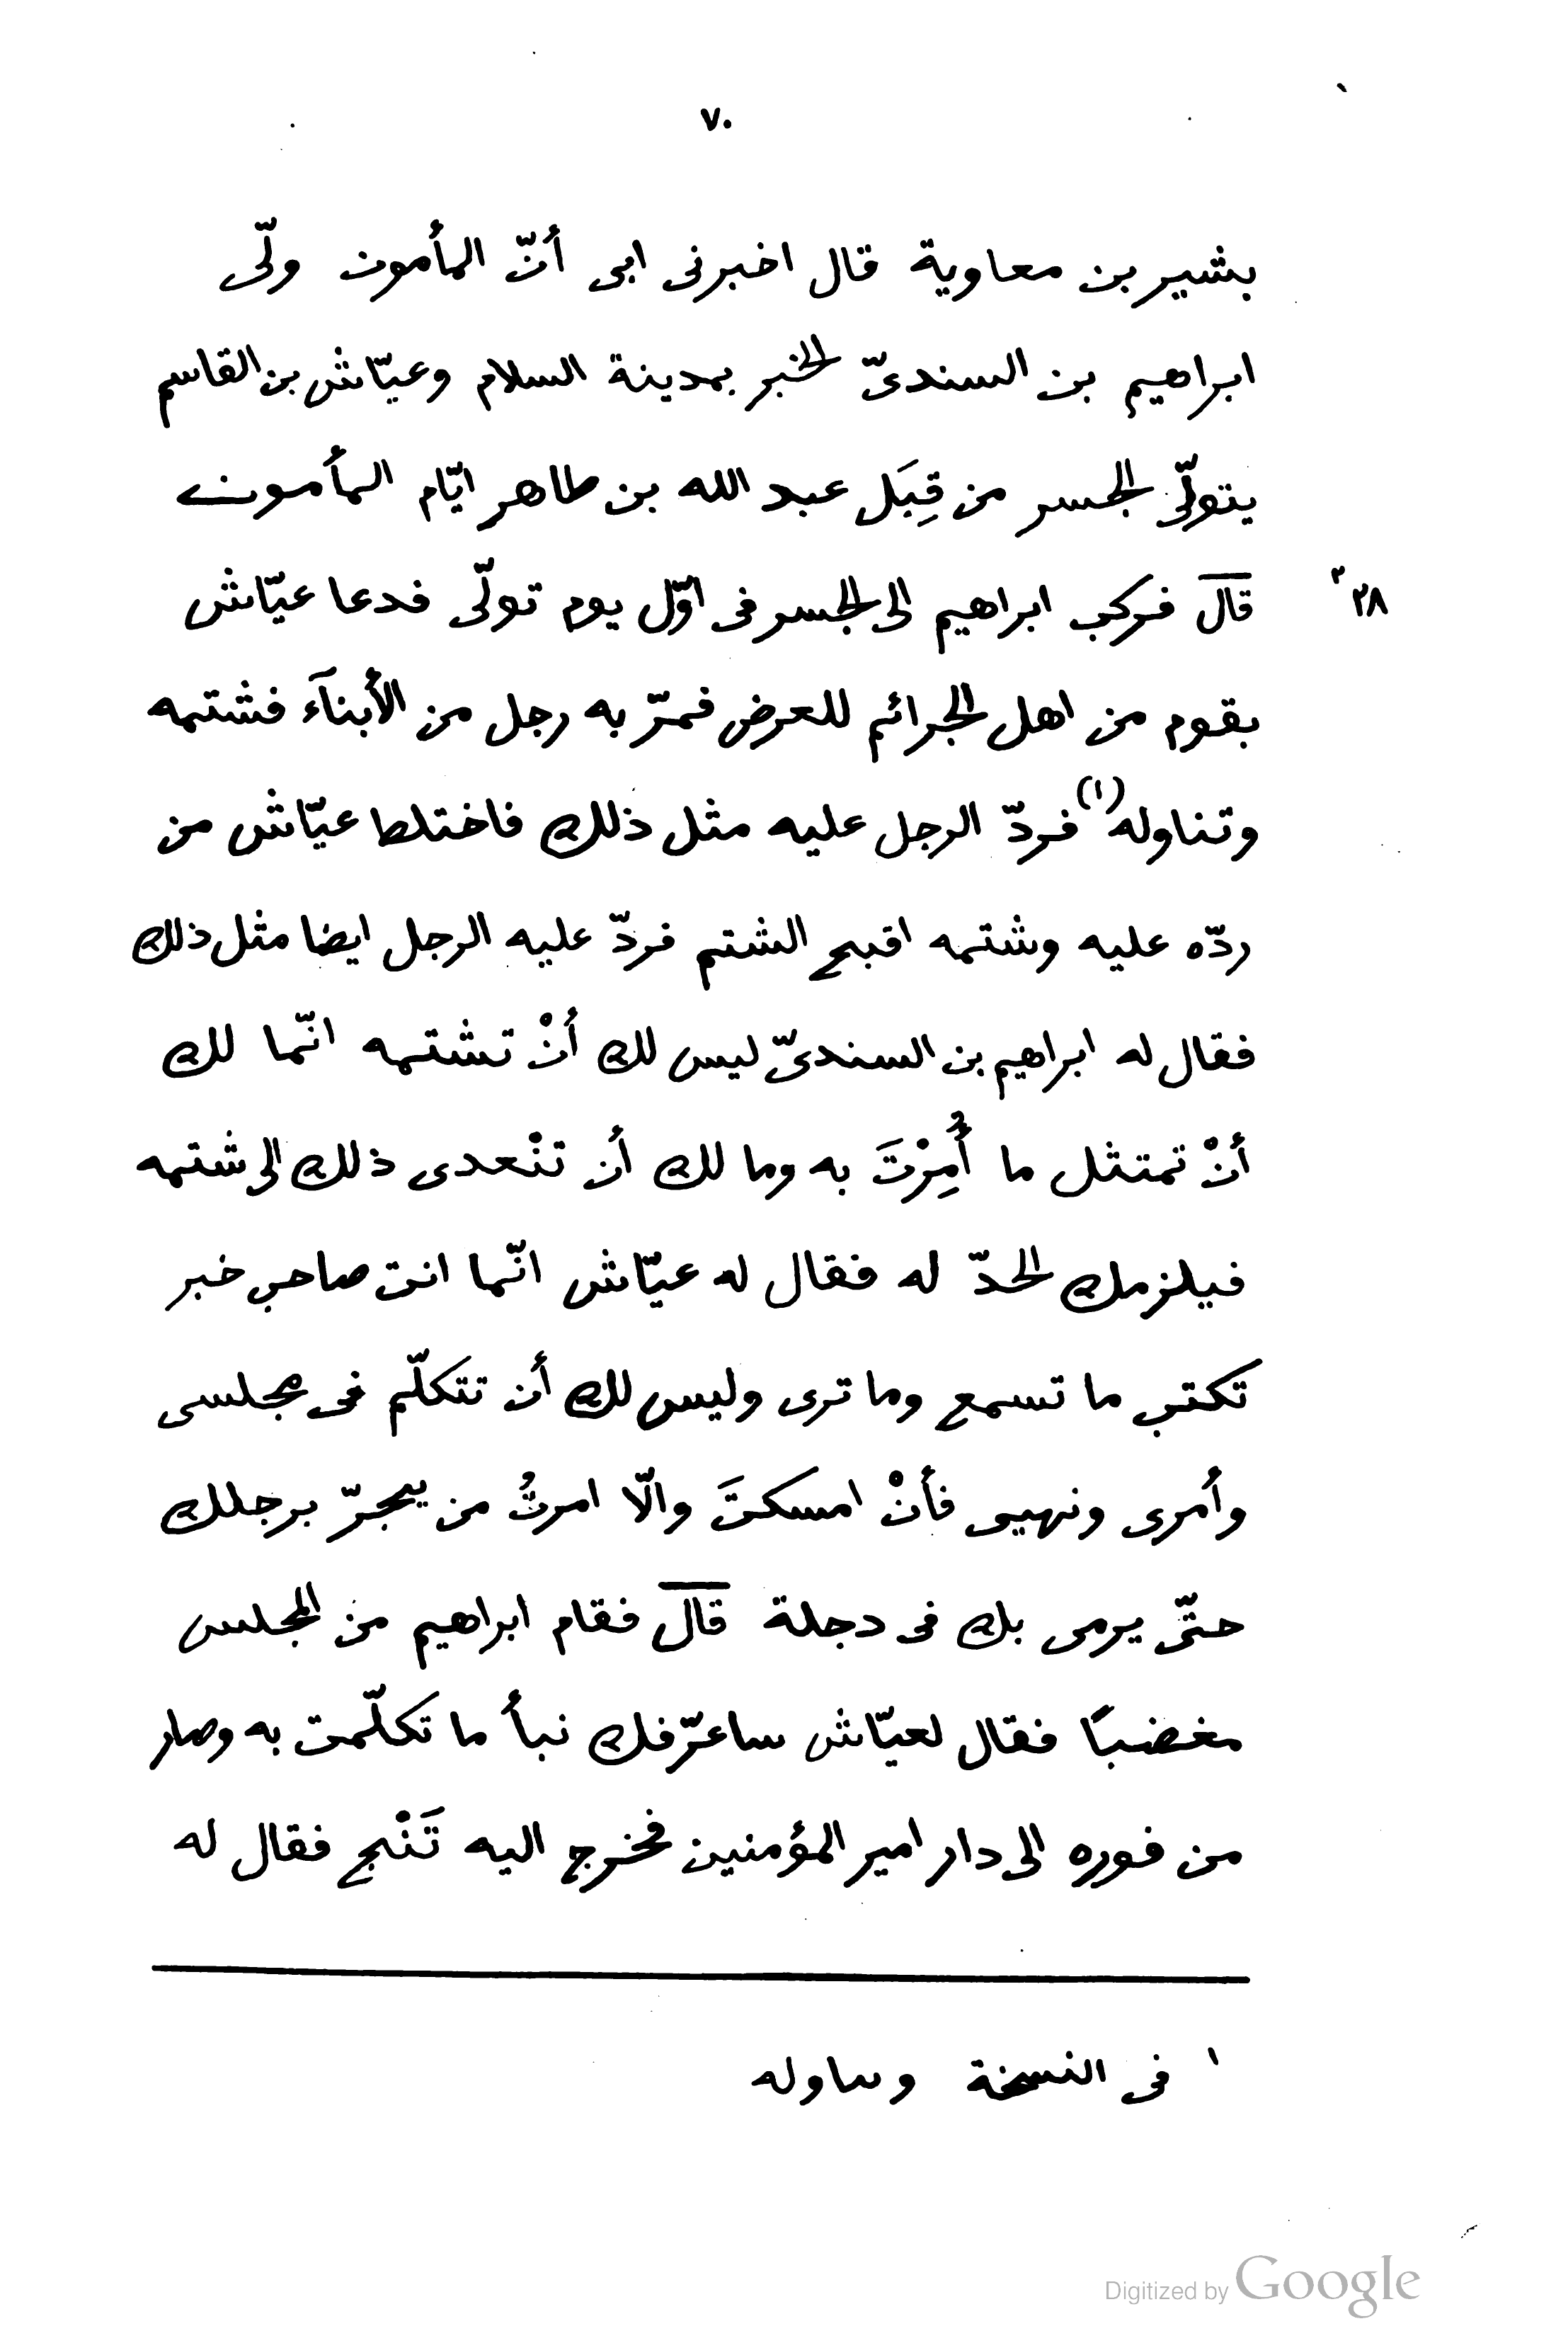 ٧٠
بشير بن معاوية قال اخبرنى ابى أنّ المأمون ولّى
ابراهيم بن السندىّ الخبر بمدينة السلام وعيّاش بن القاسم
يتولّى الجسر من قِبَل عبد الله بن طاهر ايّام المأمون
قال فركب ابراهيم الى الجسر فى اوّل يوم تولّى فدعا عيّاش
بقوم من اهل الجرائم للعرض فمرّ به رجل من الأبنآء فشتمه
وتناوله(١) فردّ الرجل عليه مثل ذلك فاختلط عيّاش من
ردّه عليه وشتمه اقبح الشتم فردّ عليه الرجل ايضا مثل ذلك
فقال له ابراهيم بن السندىّ ليس لك أنْ تشتمه انّما لك
أنْ تمتثل ما أُمِرْتَ به وما لك أن تتْعدى ذلك الى شتمه
فيلزمك الحدّ له فقال له عيّاش انّما انت صاحب خبر
تكتب ما تسمع وما ترى وليس لك أن تتكلّم فى مجلسى
وأمرى ونهيى فأنْ امسكتَ والّا امرتُ من يجرّ برجلك
حتّى يرمى بك فى دجلة قال فقام ابراهيم من المجلس
مغضبًا فقال لعيّاش ساعرّفك نبأ ما تكلّمت به وصار
من فوره الى دار امير المؤمنين فخرج اليه تَنْج فقال له
١ فى النسخة وساوله
Digitized by Google